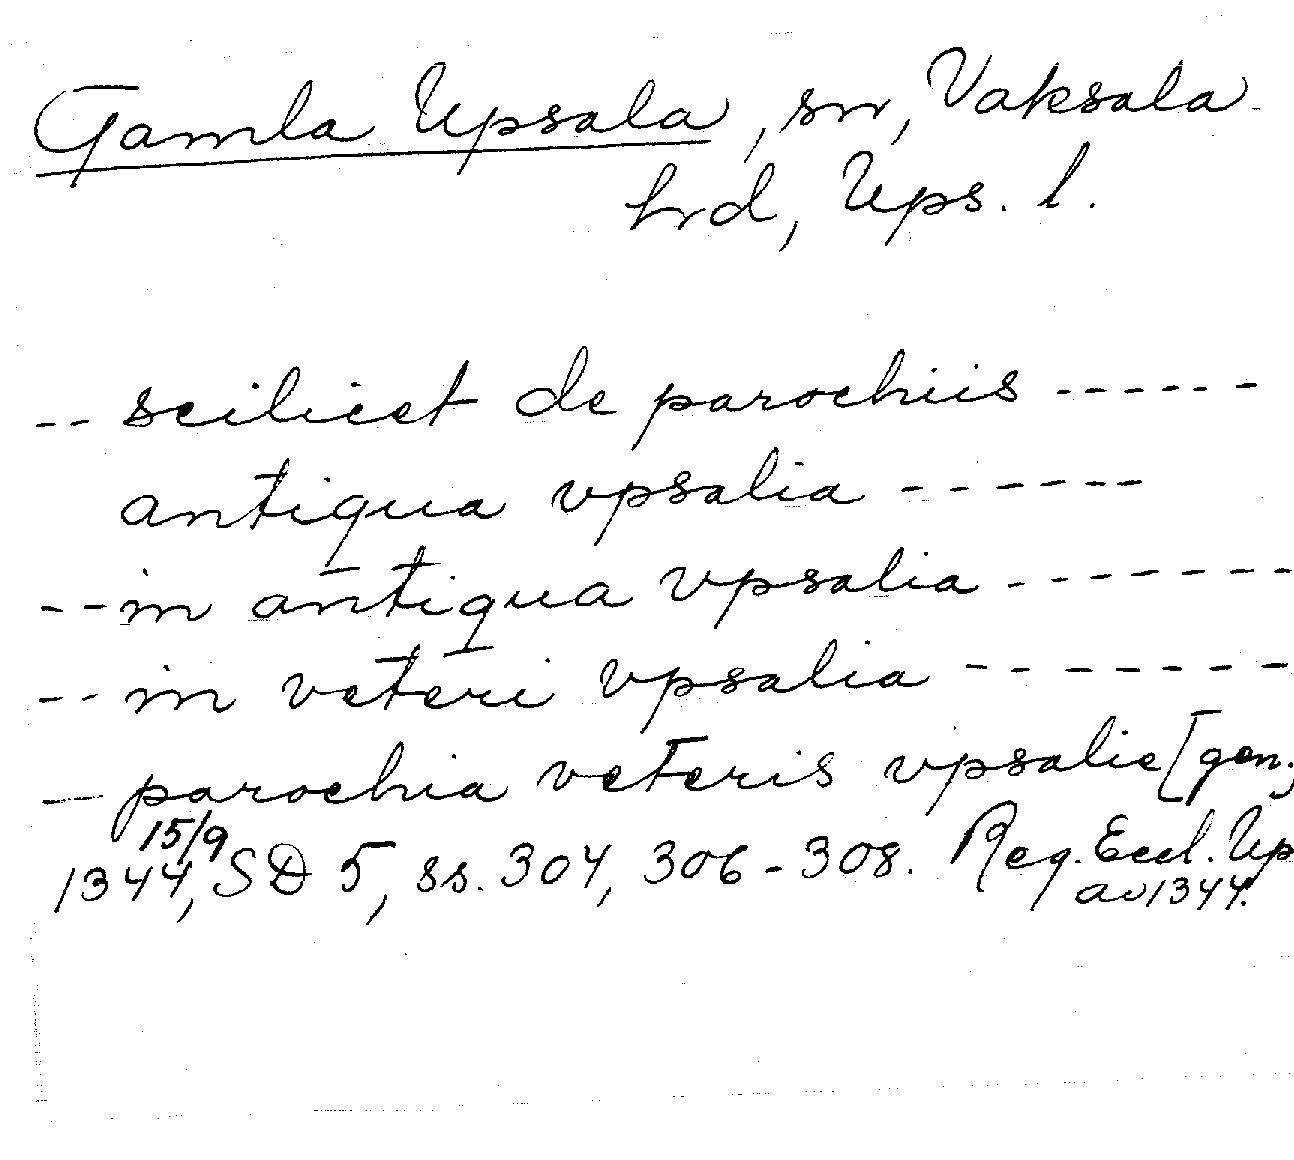 Gamla Upsala, sn, Vaksala
hrd, Ups. l.
-- scilicet de parochiis ------
antiqua vpsalia ------
-- in antiqua vpsalia -------
-- in veteri vpsalia -------
— parochia veteris vpsalie [gen.
15/9
1344, SD 5, ss. 304, 306-308. Reg. Eccl. Up
av 1344.